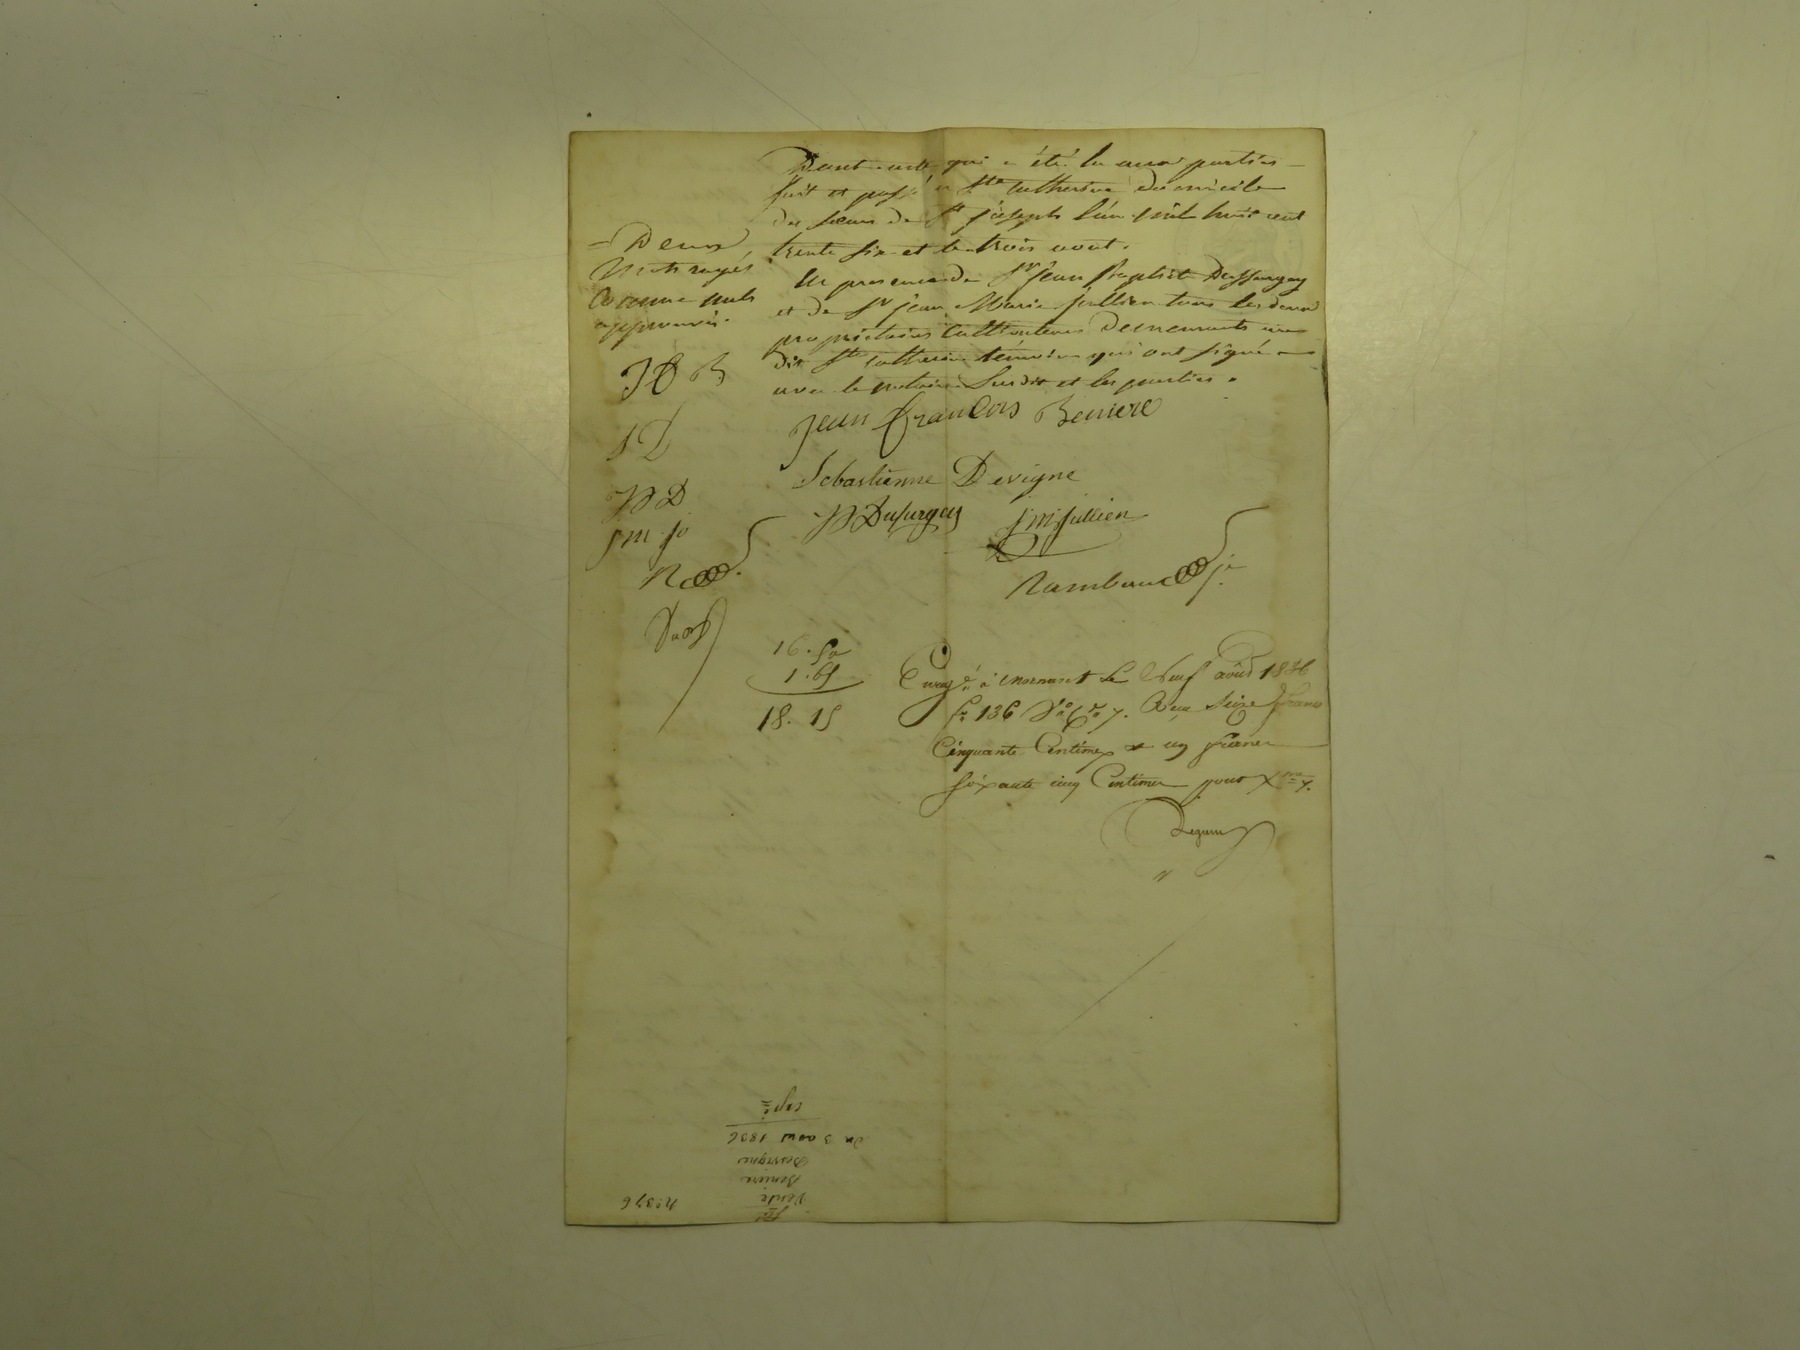 Dont acte, qui a été lu aux parties
fait et passé à Ste Catherine domicile
des sœurs de St joseph l'an mil huit cent
trente six et le trois aout.
En presence de Sr jean Baptiste Dussurgey
et de Sr jean Marie jullien tous les deux
propriétaires cultivateurs demeurants au
dit Ste Catherine témoins qui ont signé
avec le notaire Susdit et les parties.
= Deux
Mots rayés
comme nuls
approuvés.
J F B
S D
JB D
J M J
R
Jean François Beniere
Sebastienne Devigne
JB Dusurgey J M Jullien
Rambaud
16. 50
1. 65
18. 15
Enregé à Mornant le Neuf août 1836
fo 136 Vo Co 7. Reçu Seize francs
Cinquante Centimes et un franc
soixante cinq Centimes pour Xme
No 376
Vente
Beniere
Devigne
Du 3 aout 1836